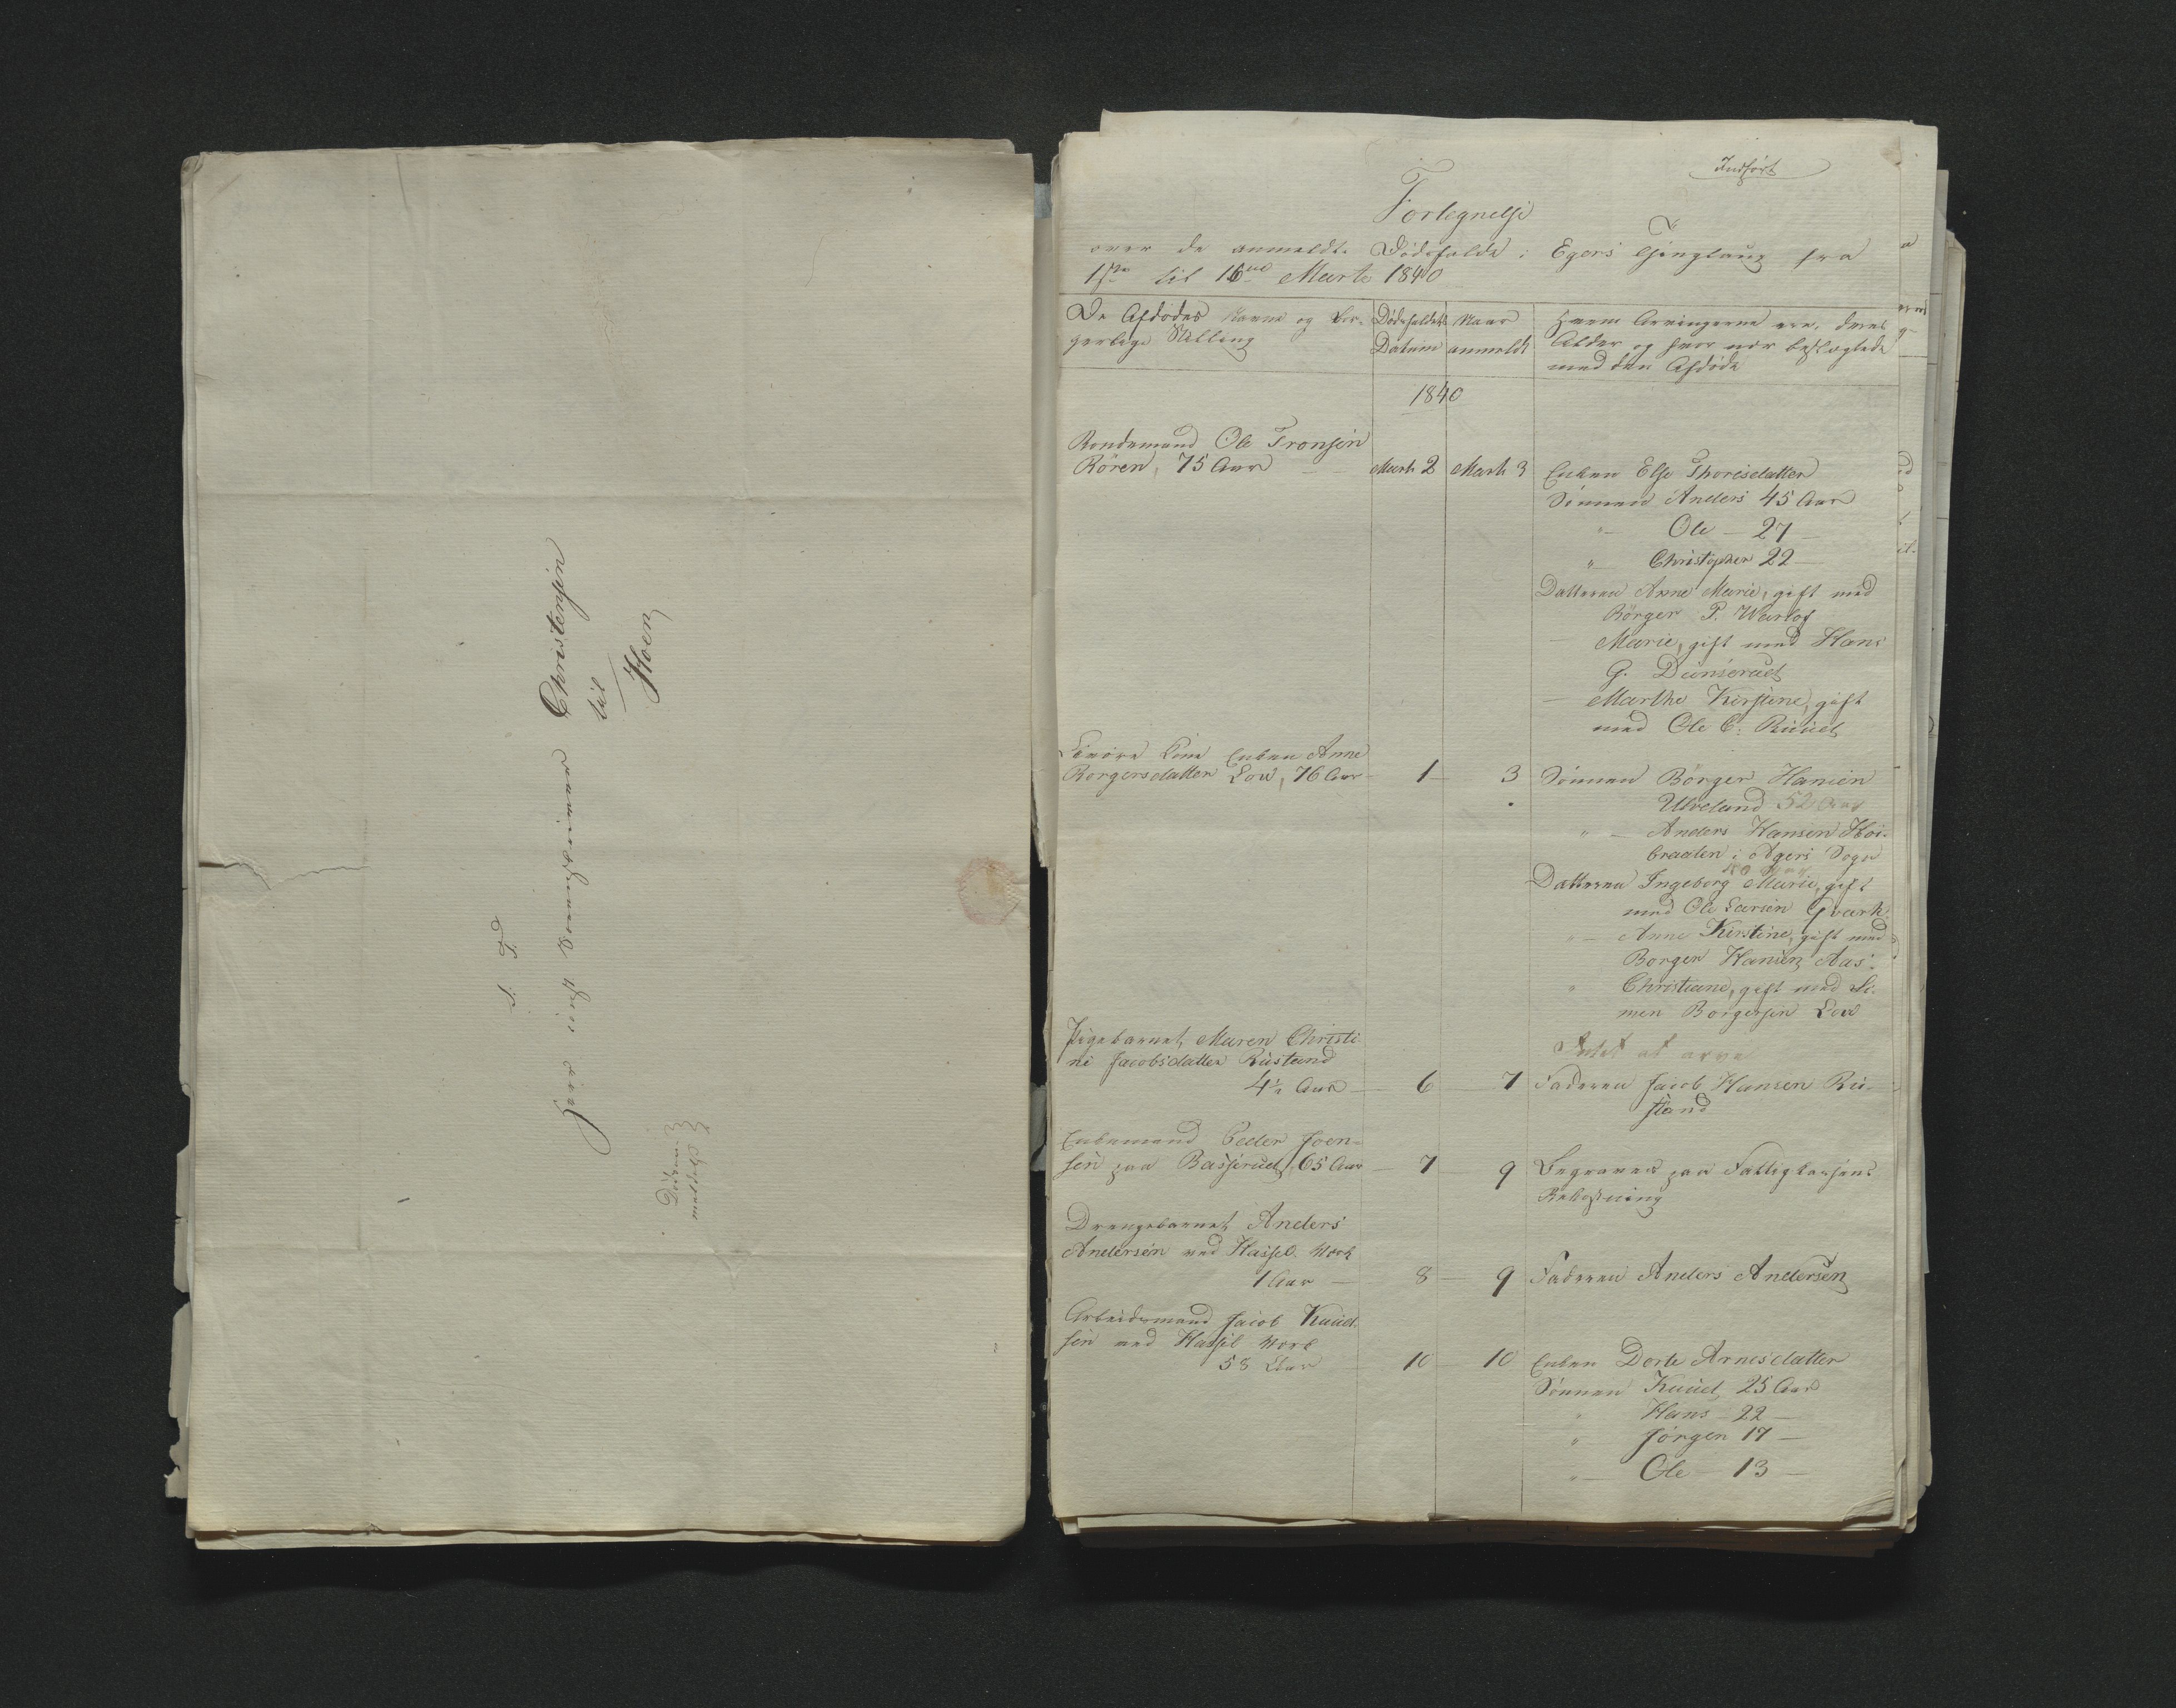 S. T.
Herr
Christensen
til
Hoen
Indført
Fortegnelse
over de anmeldte Dødsfalde i Egers Thinglaug fra
1ste til 16de Marts 1840
De Afdødes Navne og bor-
gerlige Stilling
Dødsfaldets
Datum
Naar
anmeldt
Hvem Arvingerne ere, deres
Alder og hvor nær beslægtede
med den Afdøde
1840
Bondemand Ole Tronsen
Rören, 75 Aar — Marts 2 Marts 3 Enken Else Thorisdatter
Sønnen Anders 45 Aar
"— Ole — 27 —
"— Christopher 22 —
Datteren Anne Marie, gift med
Børger P. Warlof
— Marie, gift med Hans
G. Dunserud
— Marthe Kirstine, gift
med Ole C. Ruud
Enken Anne
Borgersdatter Low, 76 Aar — 1 — 3 Sønnen Börger Hansen
Ulveland 52 Aar
" — Anders Hansen Høi-
braaten i Agers Sogn
Datteren Ingeborg Marie, gift
med Ole Larsen Gvark
" — Anne Kirstine, gift med
Borger Hansen Aas
" Christiane, gift med Si-
men Borgersen Low
Pigebarnet Maren Christi-
ne Jacobsdatter Rustand
4½ Aar — 6 — 7 Faderen Jacob Hansen Ru-
stand
Intet at arve
Enkemand Peder Joen-
sen paa Basserud, 65 Aar 7 — 9 Begraves paa Fattigkassens
Bekostning
Drengebarnet Anders
Andersen ved Hassel Værk
1 Aar — 8 — 9 Faderen Anders Andersen
Arbeidsmand Jacob Knud-
sen ved Hassel Værk
58 Aar 10 — 10 Enken Dorte Arnesdatter
Sønnen Knud 25 Aar
" Hans — 22 —
" Jörgen 17 —
" — Ole — 13 —